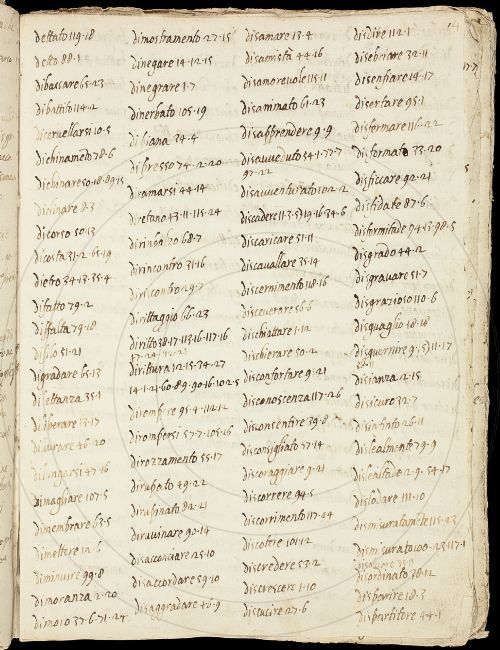 dettato 119.18
detto 88.1
dibassare 65.23
dibattito 114.2
dicervellarsi 10.5
dichinamento 78.6
dichinare
dicorso 50.13
dicosta 31.2.65.19
dietro 34.13.35.4
difalta 79.18
digradare 65.13
dilettanza 35.1
diliberare 13.17
dilungarsi 47.16
dimagliare 107.5
dimembrare 63.5
diminuire 99.8
dimoranza 2.20
dimoio 37.6.71.24
dimostramento 27.15
dinegare 14.12.15
dinegrare 1.7
dinerbato 105.19
di piana 34.4
di presso 74.2.20
diramarsi 44.14
diretano 43.11.115.24
dirincontro 31.16
diriscontro 29.7
dirittaggio 66.23
diritto 38.17.113.16.117.16
dirittura 12.15.34.27
14.1.21.60.89.90.16.102.5
dirompere 95.4.112.12
dirompersi 57.7.105.16
dirozzamento 55.17
dirubato 49.22
dirupinato 82.21
diruvinare 90.14
disacconciare 25.10
disaccordare 59.10
disaggradare 46.9
disamare 13.4
disamistà 44.16
disamorevole 115.11
disammato 61.23
disapprendere 9.9
disavveduto 54.1.77.7
97.22
disavventurato 102.2
discadere
discaricare 51.11
discavallare 35.14
discernimento 118.16
discevrare 56.6
dischiattare 1.12
dischierare 50.2
disconfortare 9.21
disconoscenza 117.26
disconsentire 39.8
disconsigliato 57.14
discoraggiare 9.21
discorrere 94.5
discorrimento 117.24
discotere 101.12
discredere 53.2
discrescere 1.10
discucire 27.6
disdire 112.1
disebriare 32.11
disenfiare 14.17
disertare 95.1
disformare 116.22
disformato 33.20
disficcare 92.21
disfidate 87.6
disformitade 74.13.98.5
disgrado 44.2
disgravare 51.7
disgrazioso 110.6
disguaglio 18.18
disguernire
disianza 2.15
disicuro 32.7
disintinto 26.11
dislealmente 79.9
dislealtade 2.9.54.17
dislodare 111.10
dismisuratamente 115.23
dismisurato 100.23.117.1
disordinato 38.12
disparire 18.3
dispartitore 44.1